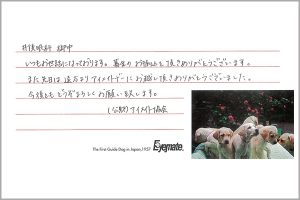 井後眼科 御中
いつもお世話になっております。暮生のお品をご頂きありがとうございます。
また先日は遠方よりアイメイトデーにお越し頂きありがとうございました。
今後ともどうぞよろしくお願い致します。
(公財)アイメイト協会
The First Guide Dog in Japan,1957 Eyemate.